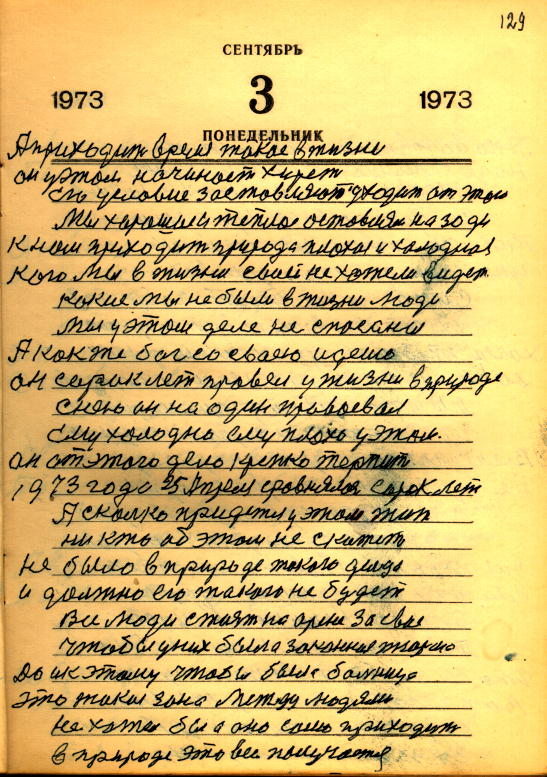 129
СЕНТЯБРЬ
1973 3 1973
ПОНЕДЕЛЬНИК
А приходит время такое в жизни
он у этом начинает хиреть
Его условие заставляют уходит от этого
Мы хорошые и теплое оставиям на зади
К нам приходит природа плохая и холодная
Кого мы в жизни своей не хотем видет
какие мы не были в жизни люди
мы у этом деле не спасаны
А как же бог со сваею идею
он сорок лет провел у жизни в природе
с нею он на один провоевал
Ему холодно ему плохо у этом.
он от этого дело крепко терпит
1973 года 25 Апреля сровнялся сорок лет
А сколко придется у этом жит
ни кто об этом не скажеть
не было в природе такого
и должно его такого не будет
Все люди стоят на за свое
чтобы у них была законная
да и к этому чтобы была болница
это такая зона между людями
не хотел бы а оно само приходит
в природе это все получается